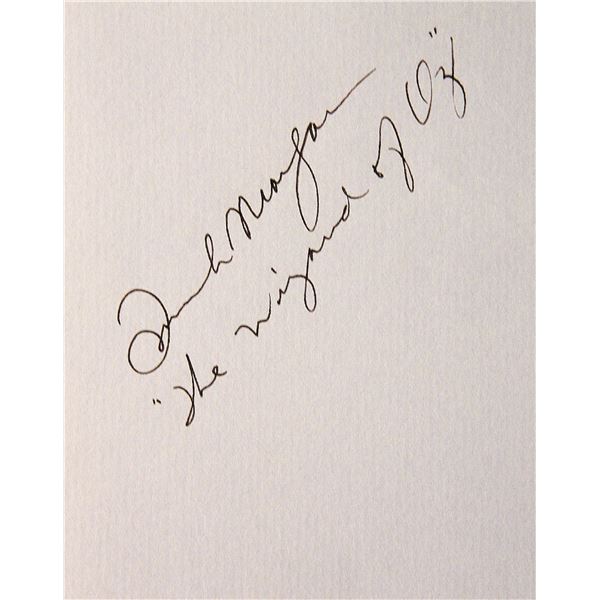 Frank Morgan
"The Wizard of Oz"